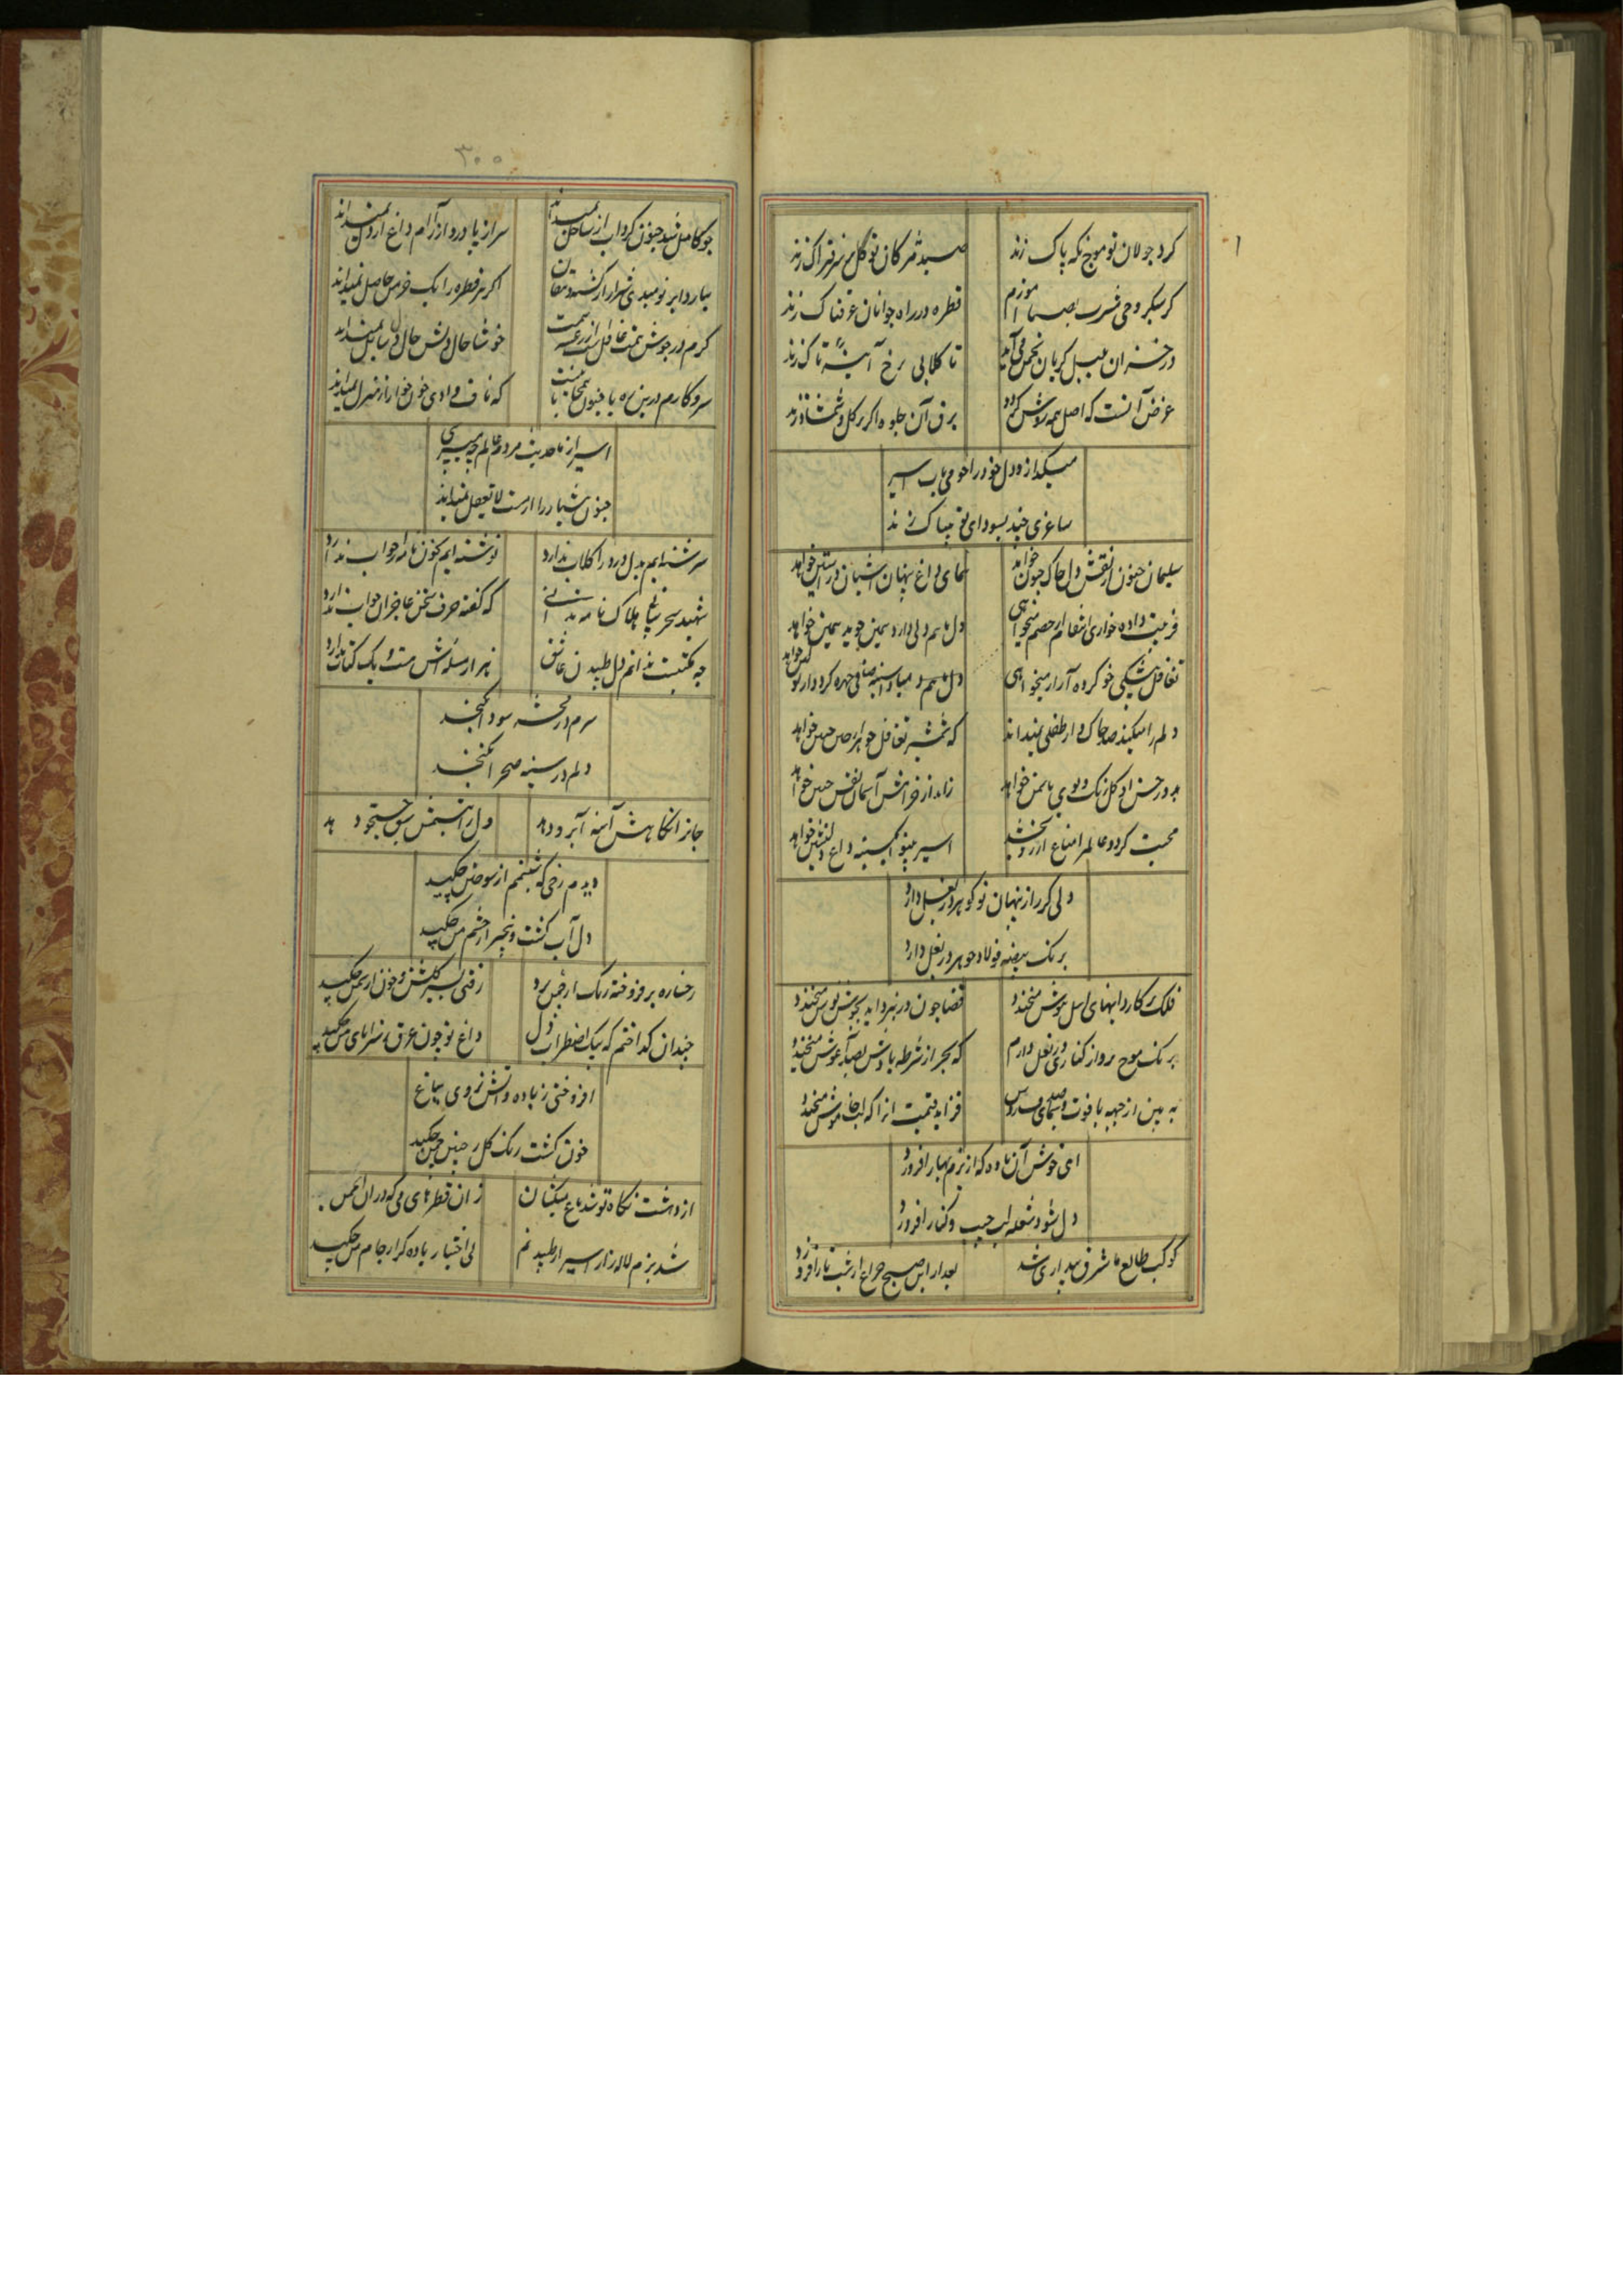 کرد جولان تو موج نکه پاک زند
صید مژکان تو کل بر سر فتراک زند
کر سبکروحی مشرب بصبا آموزم
قطره در راه جوانان عرفناک زند
در خزان بلبل کریان بچمن می آید
تا کلابی برخ آینه تاک زند
غرض آنست که اصل همه روشن کردد
برق آن جلوه اکر بر کل و شمشاد زند
میکدازد دل خود را چو می ناب اسیر
ساغری چند بسودای تو بیباک زند
سلیمان جنون از نقش دل خاک جبین خواهد
همای داغ پنهان آشیان در آستین خواهد
فریبت داده خواری انتقام از خصم میخواهی
دل ما هم دلی دارد همین جوید همین خواهد
تغافل شیکی خو کرده آزار میخواهی
دل ما هم
دلم را میکند صد چاک و از طفلی نمیداند
که شمشیر تغافل جوهر چین جبین خواهد
بدور حسن او کل رنک و بوی یاسمن خواهد
محبت کر دو عالم را متاع آرزو بخشد
اسیر بینوا یکسینه داغ دلنشین خواهد
دلی کز راز پنهان تو کوهر در بغل دارد
برنک بیضه فولاد جوهر در بغل دارد
قضا چون در نبرد آید بجوشن پوش میخندد
برنک موج پرواز کناری در بغل دارم
که بحر از شرطه بادش بصد آغوش میخندد
به بین از جبهه یاقوت و سیمای
فزاید قیمت آنرا که لب خاموش میخندد
ای خوش آن باده که از بزم بهار افروزد
دل شود شعله لب جیب و کنار افروزد
کوکب طالع ما شرف بیداری شد
بعد ازین صبح چراغ از شب تار افروزد
۳۰۰
چو کامل شد جنون کرداب از ساحل نمیداند
سر از پا درد از آرام داغ از دل نمیداند
ببارد ابر نومیدی شرار از کشت دهقان
اکر هر قطره را یک خرمن حاصل نمیداند
کرم در جوش نعمت غافل است از
خوشا حال دلش حال دل سایل نمیداند
سر و کارم درین ره با جنون
که تا ف وادی خونخوار از منزل نمیداند
اسیر از ما حدیث مردم عالم چه میپرسی
جنون هشیار را از مست لا یعقل نمیداند
سرشته ایم بدل درد را کلاب ندارد
نوشته ایم بخون نامه را جواب ندارد
شهید سحر بیانی هلاک نامه
که کفته حرف سخن عاجزان جواب ندارد
چه مکتبست ندانم دل طپیدن عاشق
هزار مسئله اش هست و یک کتاب ندارد
سرم در سودا نکنجد
دلم در سینه صحرا نکنجد
جانرا نکاهش آینه آبرو دهد
دل را تبسمش سبق جستجو دهد
دیدم رخی که شبنمم از سوختن چکید
دل آب کشت و بیخبر از چشم من چکید
رخساره برفروخته رنک از چمن برد
رفتی بسیر کلشن و خون از سمن چکید
چندان کداختم که بیک اضطراب دل
داغ تو چون عرق ز سراپای من چکید
افروختی ز باده و آتش ز روی باغ
خون کشت رنک کل ز جبین چمن چکید
از داشت نکاه تو شد باغ میکشان
زان قطره های می که در آن انجمن
شد بزم لاله زار اسیر از طپیدنم
بی اختیار باده کر از جام من چکید